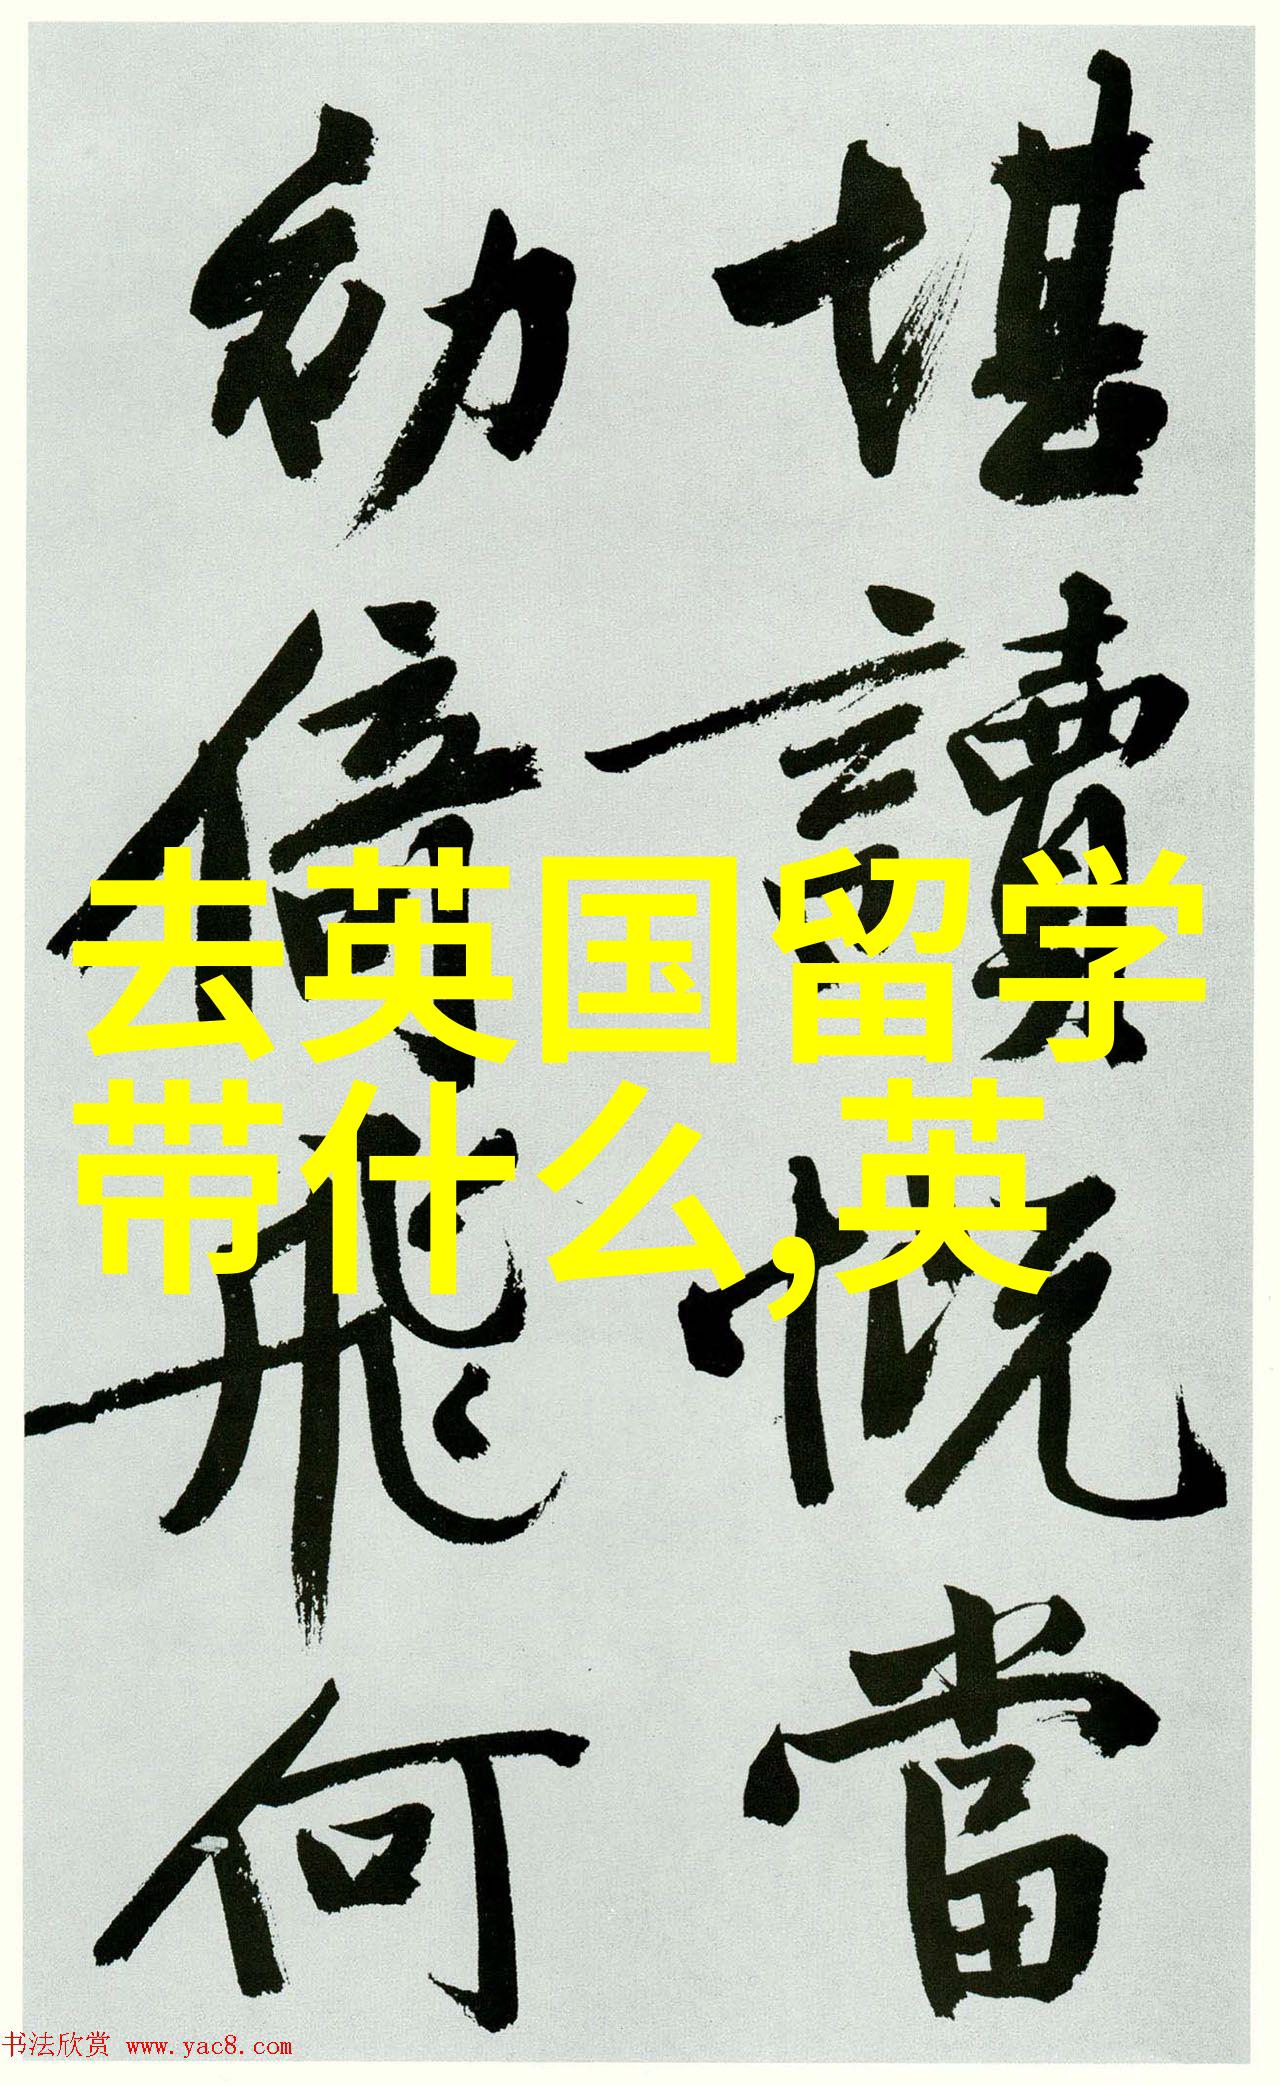 堪讀慨當
幼倍飛何
去英国留学
带什么,英
书法欣赏 www.yac8.com